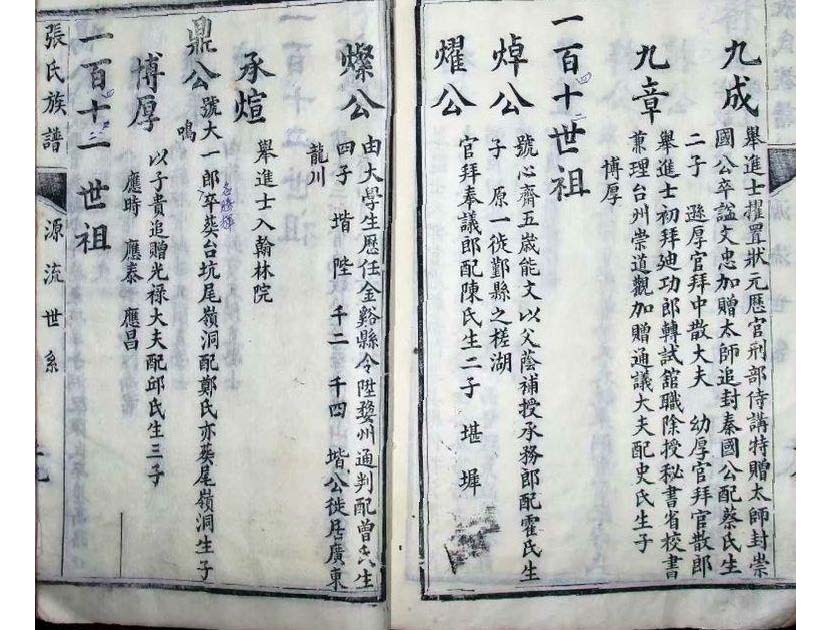 九成
舉進士擢置狀元歷官刑部侍講特贈太師封崇
國公卒諡文忠加贈太師追封秦國公配蔡氏生
二子 遜厚官拜中散大夫 幼厚官拜官散郎
九章
舉進士初拜廸功郎轉試舘職除授秘書省校書
兼理台州崇道觀加贈通議大夫配史氏生子
博厚
一百十世祖
四
二
焯公
號心齋五歲能文以父蔭補授承務郎配霍氏生
子 原一徙鄞縣之槎湖
燿公
官拜奉議郎配陳氏生二子 堪 墀
燦公
由大學生歷任金谿縣令陞婺州通判配曾氏生
四子 堦 陛 千二 千四 堦公徙居廣東
龍川
承煊
舉進士入翰林院
鼎公
號大一郎卒葬台坑尾嶺洞配鄭氏亦葬尾嶺洞生子
鳴
博厚
以子貴追贈光祿大夫配邱氏生三子
應時 應泰 應昌
一百十一世祖
四
三
張氏族譜
源流世系